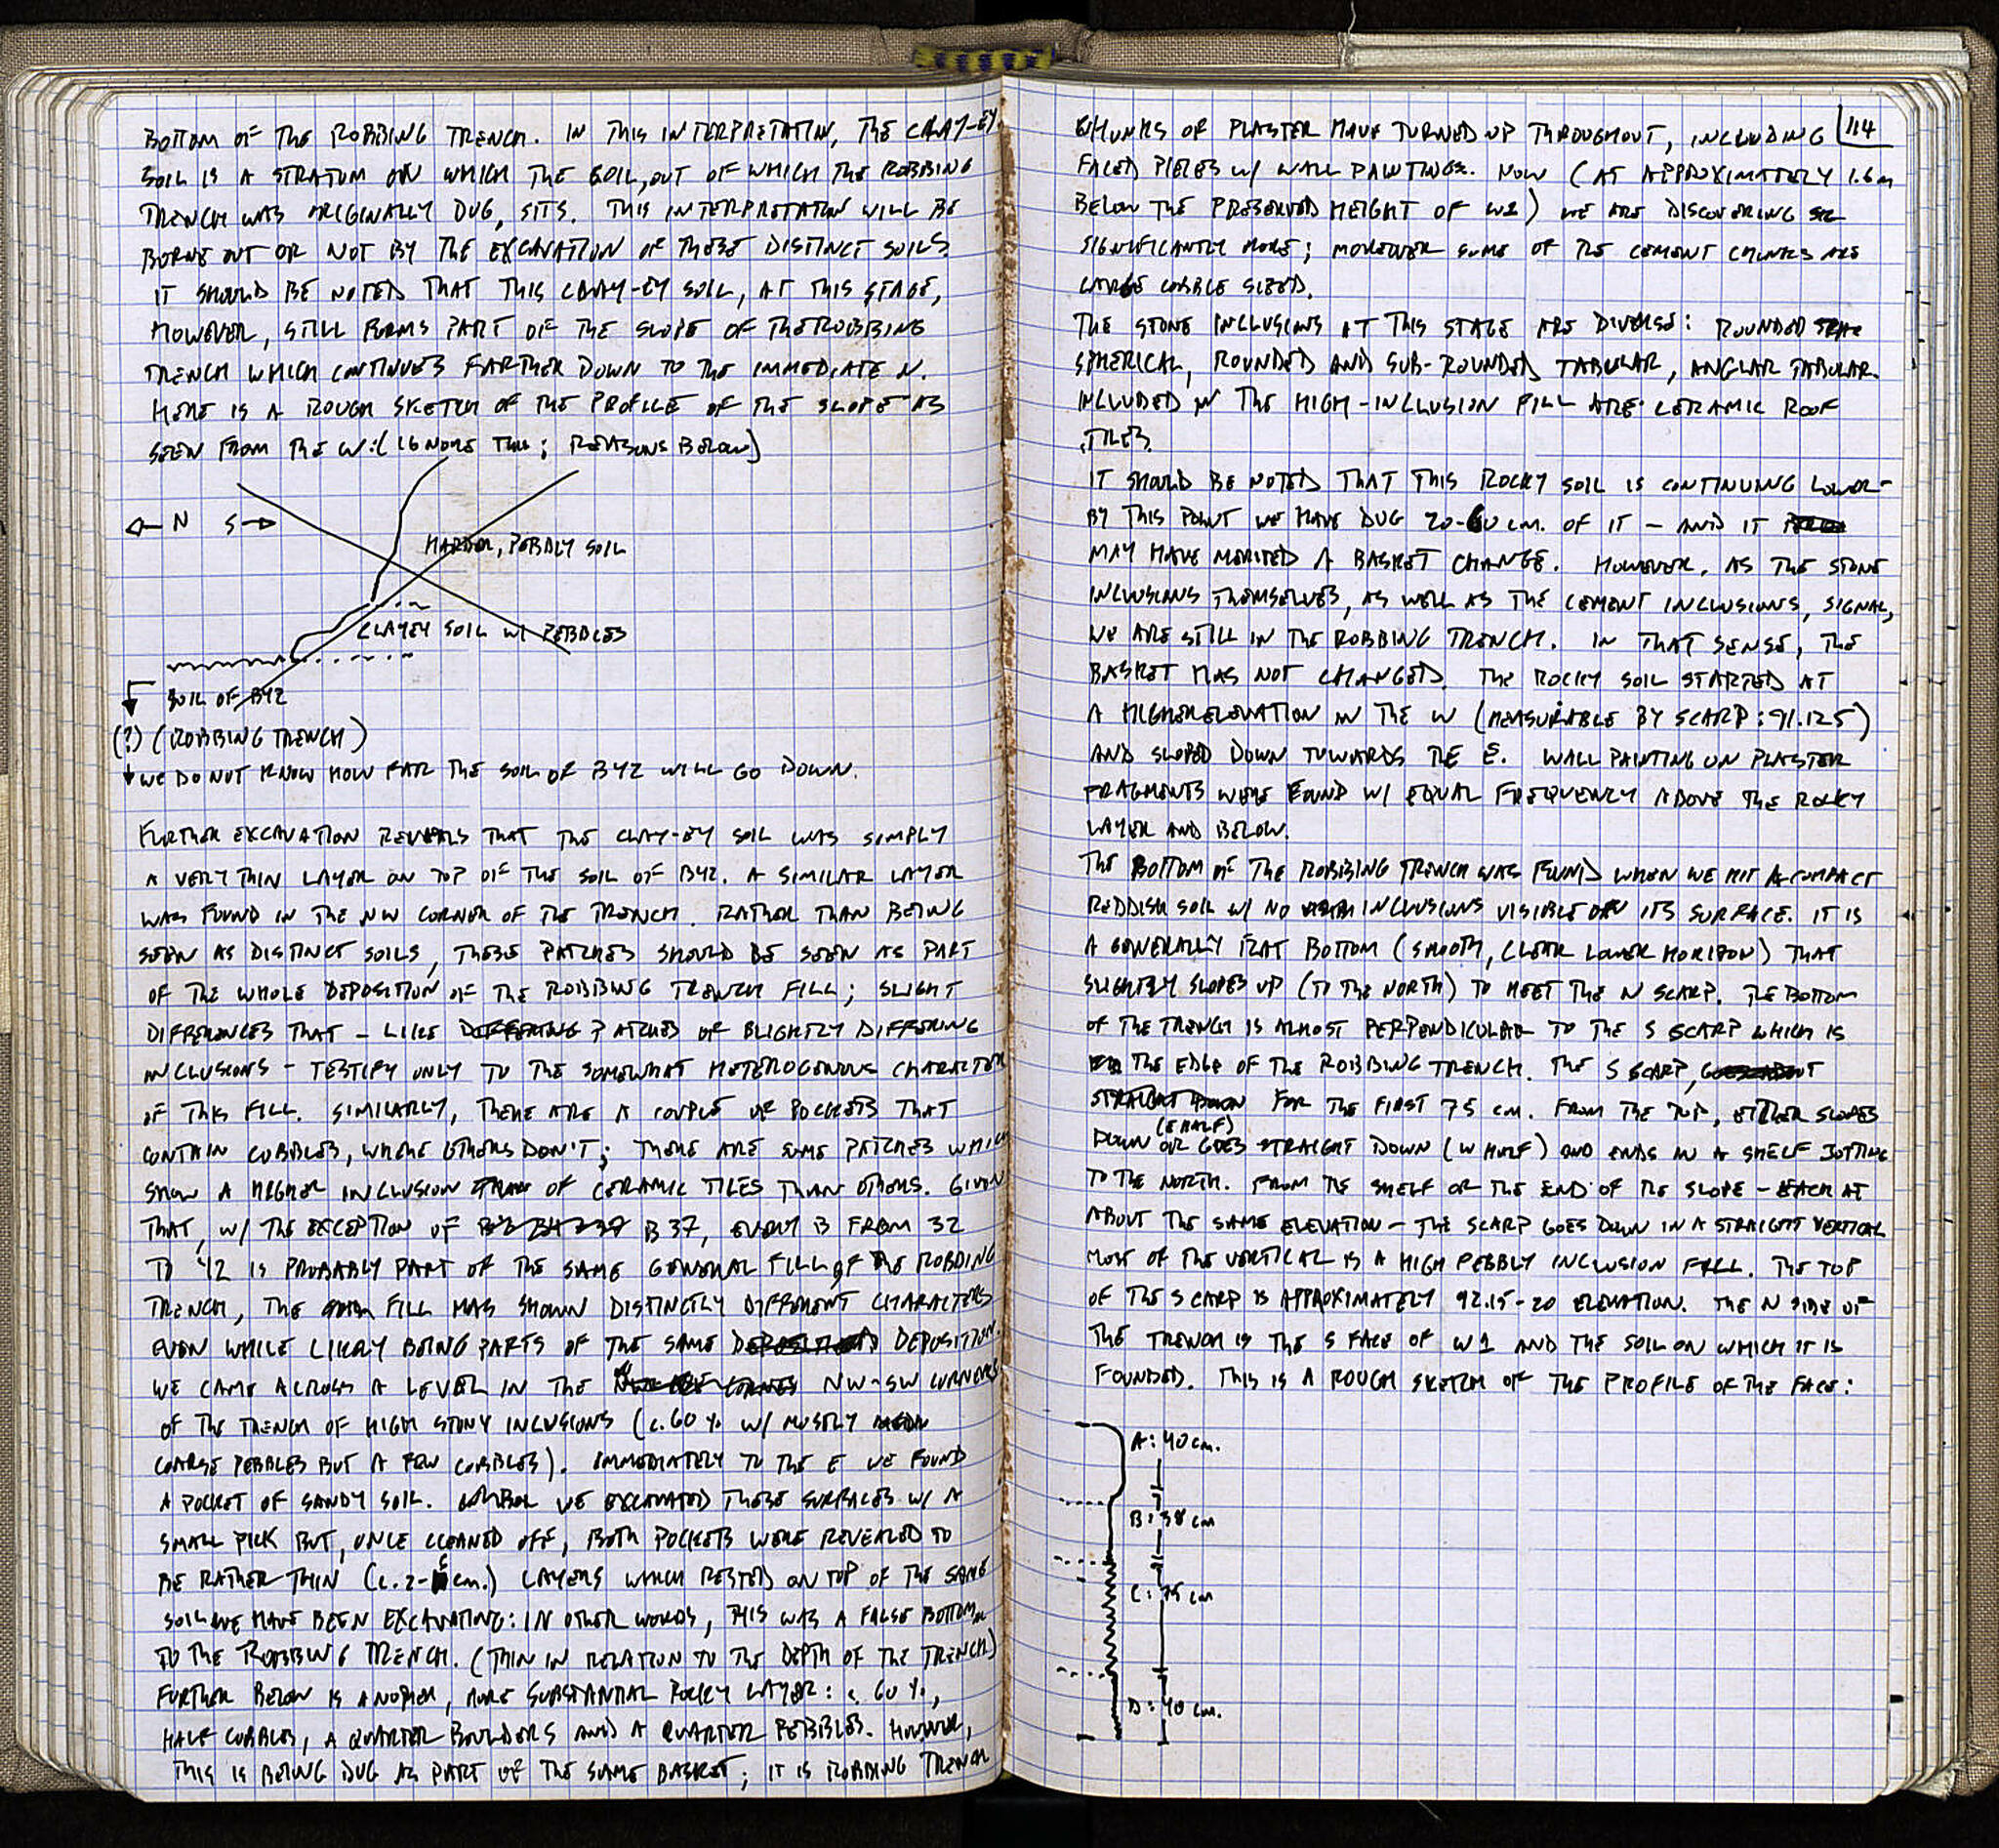 BOTTOM OF THE ROBBING TRENCH. IN THIS INTERPRETATION, THE CLAY-EY
SOIL IS A STRATUM ON WHICH THE SOIL, OUT OF WHICH THE ROBBING
TRENCH WAS ORIGINALLY DUG, SITS. THIS INTERPRETATION WILL BE
BORNE OUT OR NOT BY THE EXCAVATION OF THESE DISTINCT SOILS.
IT SHOULD BE NOTED THAT THIS CLAY-EY SOIL, AT THIS STAGE,
HOWEVER, STILL FORMS PART OF THE SLOPE OF THE ROBBING
TRENCH WHICH CONTINUES FARTHER DOWN TO THE IMMEDIATE N.
HERE IS A ROUGH SKETCH OF THE PROFILE OF THE SLOPE AS
SEEN FROM THE W: (IGNORE THIS; REASONS BELOW)
N S
HARDER, PEBBLY SOIL
CLAYEY SOIL W/ PEBBLES
SOIL OF B42
(?) (ROBBING TRENCH)
WE DO NOT KNOW HOW FAR THE SOIL OF B42 WILL GO DOWN.
FURTHER EXCAVATION REVEALS THAT THE CLAY-EY SOIL WAS SIMPLY
A VERY THIN LAYER ON TOP OF THE SOIL OF B42. A SIMILAR LAYER
WAS FOUND IN THE NW CORNER OF THE TRENCH. RATHER THAN BEING
SEEN AS DISTINCT SOILS, THESE PATCHES SHOULD BE SEEN AS PART
OF THE WHOLE DEPOSITION OF THE ROBBING TRENCH FILL; SLIGHT
DIFFERENCES THAT - LIKE DIFFERING PATCHES OF SLIGHTLY DIFFERING
INCLUSIONS - TESTIFY ONLY TO THE SOMEWHAT HETEROGENOUS CHARACTER
OF THIS FILL. SIMILARLY, THERE ARE A COUPLE OF POCKETS THAT
CONTAIN COBBLES, WHERE OTHERS DON'T; THERE ARE SOME PATCHES WHICH
SHOW A HIGHER INCLUSION THAN OF CERAMIC TILES THAN OTHERS. GIVEN
THAT, W/ THE EXCEPTION OF B 37, EVERY B FROM 32
TO 42 IS PROBABLY PART OF THE SAME GENERAL FILL OF THE ROBBING
TRENCH, THE FILL HAS SHOWN DISTINCTLY DIFFERENT CHARACTERS
EVEN WHILE LIKELY BEING PARTS OF THE SAME DEPOSITION.
WE CAME ACROSS A LEVEL IN THE NW-SW CORNERS
OF THE TRENCH OF HIGH STONY INCLUSIONS (C. 60 % W/ MOSTLY
COARSE PEBBLES BUT A FEW COBBLES). IMMEDIATELY TO THE E WE FOUND
A POCKET OF SANDY SOIL. WE EXCAVATED THESE SURFACES W/ A
SMALL PICK BUT, ONCE CLEANED OFF, BOTH POCKETS WERE REVEALED TO
BE RATHER THIN (C. 2- cm.) LAYERS WHICH RESTED ON TOP OF THE SAME
SOIL WE HAVE BEEN EXCAVATING: IN OTHER WORDS, THIS WAS A FALSE BOTTOM
TO THE ROBBING TRENCH. (THIN IN RELATION TO THE DEPTH OF THE TRENCH)
FURTHER BELOW IS ANOTHER, MORE SUBSTANTIAL ROCKY LAYER: C. 60 %,
HALF COBBLES, A QUARTER BOULDERS AND A QUARTER PEBBLES. HOWEVER,
THIS IS BEING DUG AS PART OF THE SAME BASKET; IT IS ROBBING TRENCH
114
CHUNKS OF PLASTER HAVE TURNED UP THROUGHOUT, INCLUDING
FACED PIECES W/ WALL PAINTINGS. NOW (AT APPROXIMATELY 1.6 m
BELOW THE PRESERVED HEIGHT OF W1) WE ARE DISCOVERING
SIGNIFICANTLY MORE; MOREOVER SOME OF THE CEMENT CHUNKS ARE
LARGE COBBLE SIZED.
THE STONE INCLUSIONS AT THIS STAGE ARE DIVERSE: ROUNDED
SPHERICAL, ROUNDED AND SUB-ROUNDED TABULAR, ANGLAR TABULAR.
INCLUDED IN THE HIGH-INCLUSION FILL ARE CERAMIC ROOF
TILES.
IT SHOULD BE NOTED THAT THIS ROCKY SOIL IS CONTINUING LOWER-
BY THIS POINT WE HAVE DUG 20-60 cm. OF IT - AND IT
MAY HAVE MERITED A BASKET CHANGE. HOWEVER, AS THE STONE
INCLUSIONS THEMSELVES, AS WELL AS THE CEMENT INCLUSIONS, SIGNAL,
WE ARE STILL IN THE ROBBING TRENCH. IN THAT SENSE, THE
BASKET HAS NOT CHANGED. THE ROCKY SOIL STARTED AT
A HIGHER ELEVATION IN THE W (MEASURABLE BY SCARP: 91.125)
AND SLOPED DOWN TOWARDS THE E. WALL PAINTING ON PLASTER
FRAGMENTS WERE FOUND W/ EQUAL FREQUENCY ABOVE THE ROCKY
LAYER AND BELOW.
THE BOTTOM OF THE ROBBING TRENCH WAS FOUND WHEN WE HIT A COMPACT
REDDISH SOIL W/ NO INCLUSIONS VISIBLE ON ITS SURFACE. IT IS
A GENERALLY FLAT BOTTOM (SMOOTH, CLEAR LOWER HORIZON) THAT
SLIGHTLY SLOPES UP (TO THE NORTH) TO MEET THE N SCARP. THE BOTTOM
OF THE TRENCH IS ALMOST PERPENDICULAR TO THE S SCARP WHICH IS
THE EDGE OF THE ROBBING TRENCH. THE S SCARP,
STRAIGHT DOWN FOR THE FIRST 75 cm. FROM THE TOP, EITHER SLOPES
(E HALF)
DOWN OR GOES STRAIGHT DOWN (W HALF) AND ENDS IN A SHELF JUTTING
TO THE NORTH. FROM THE SHELF OR THE END OF THE SLOPE - EACH AT
ABOUT THE SAME ELEVATION - THE SCARP GOES DOWN IN A STRAIGHT VERTICAL
MOST OF THE VERTICAL IS A HIGH PEBBLY INCLUSION FILL. THE TOP
OF THE SCARP IS APPROXIMATELY 92.15-20 ELEVATION. THE N SIDE OF
THE TRENCH IS THE S FACE OF W1 AND THE SOIL ON WHICH IT IS
FOUNDED. THIS IS A ROUGH SKETCH OF THE PROFILE OF THE FACE:
A: 40 cm.
B: 38 cm
C: 75 cm
D: 40 cm.